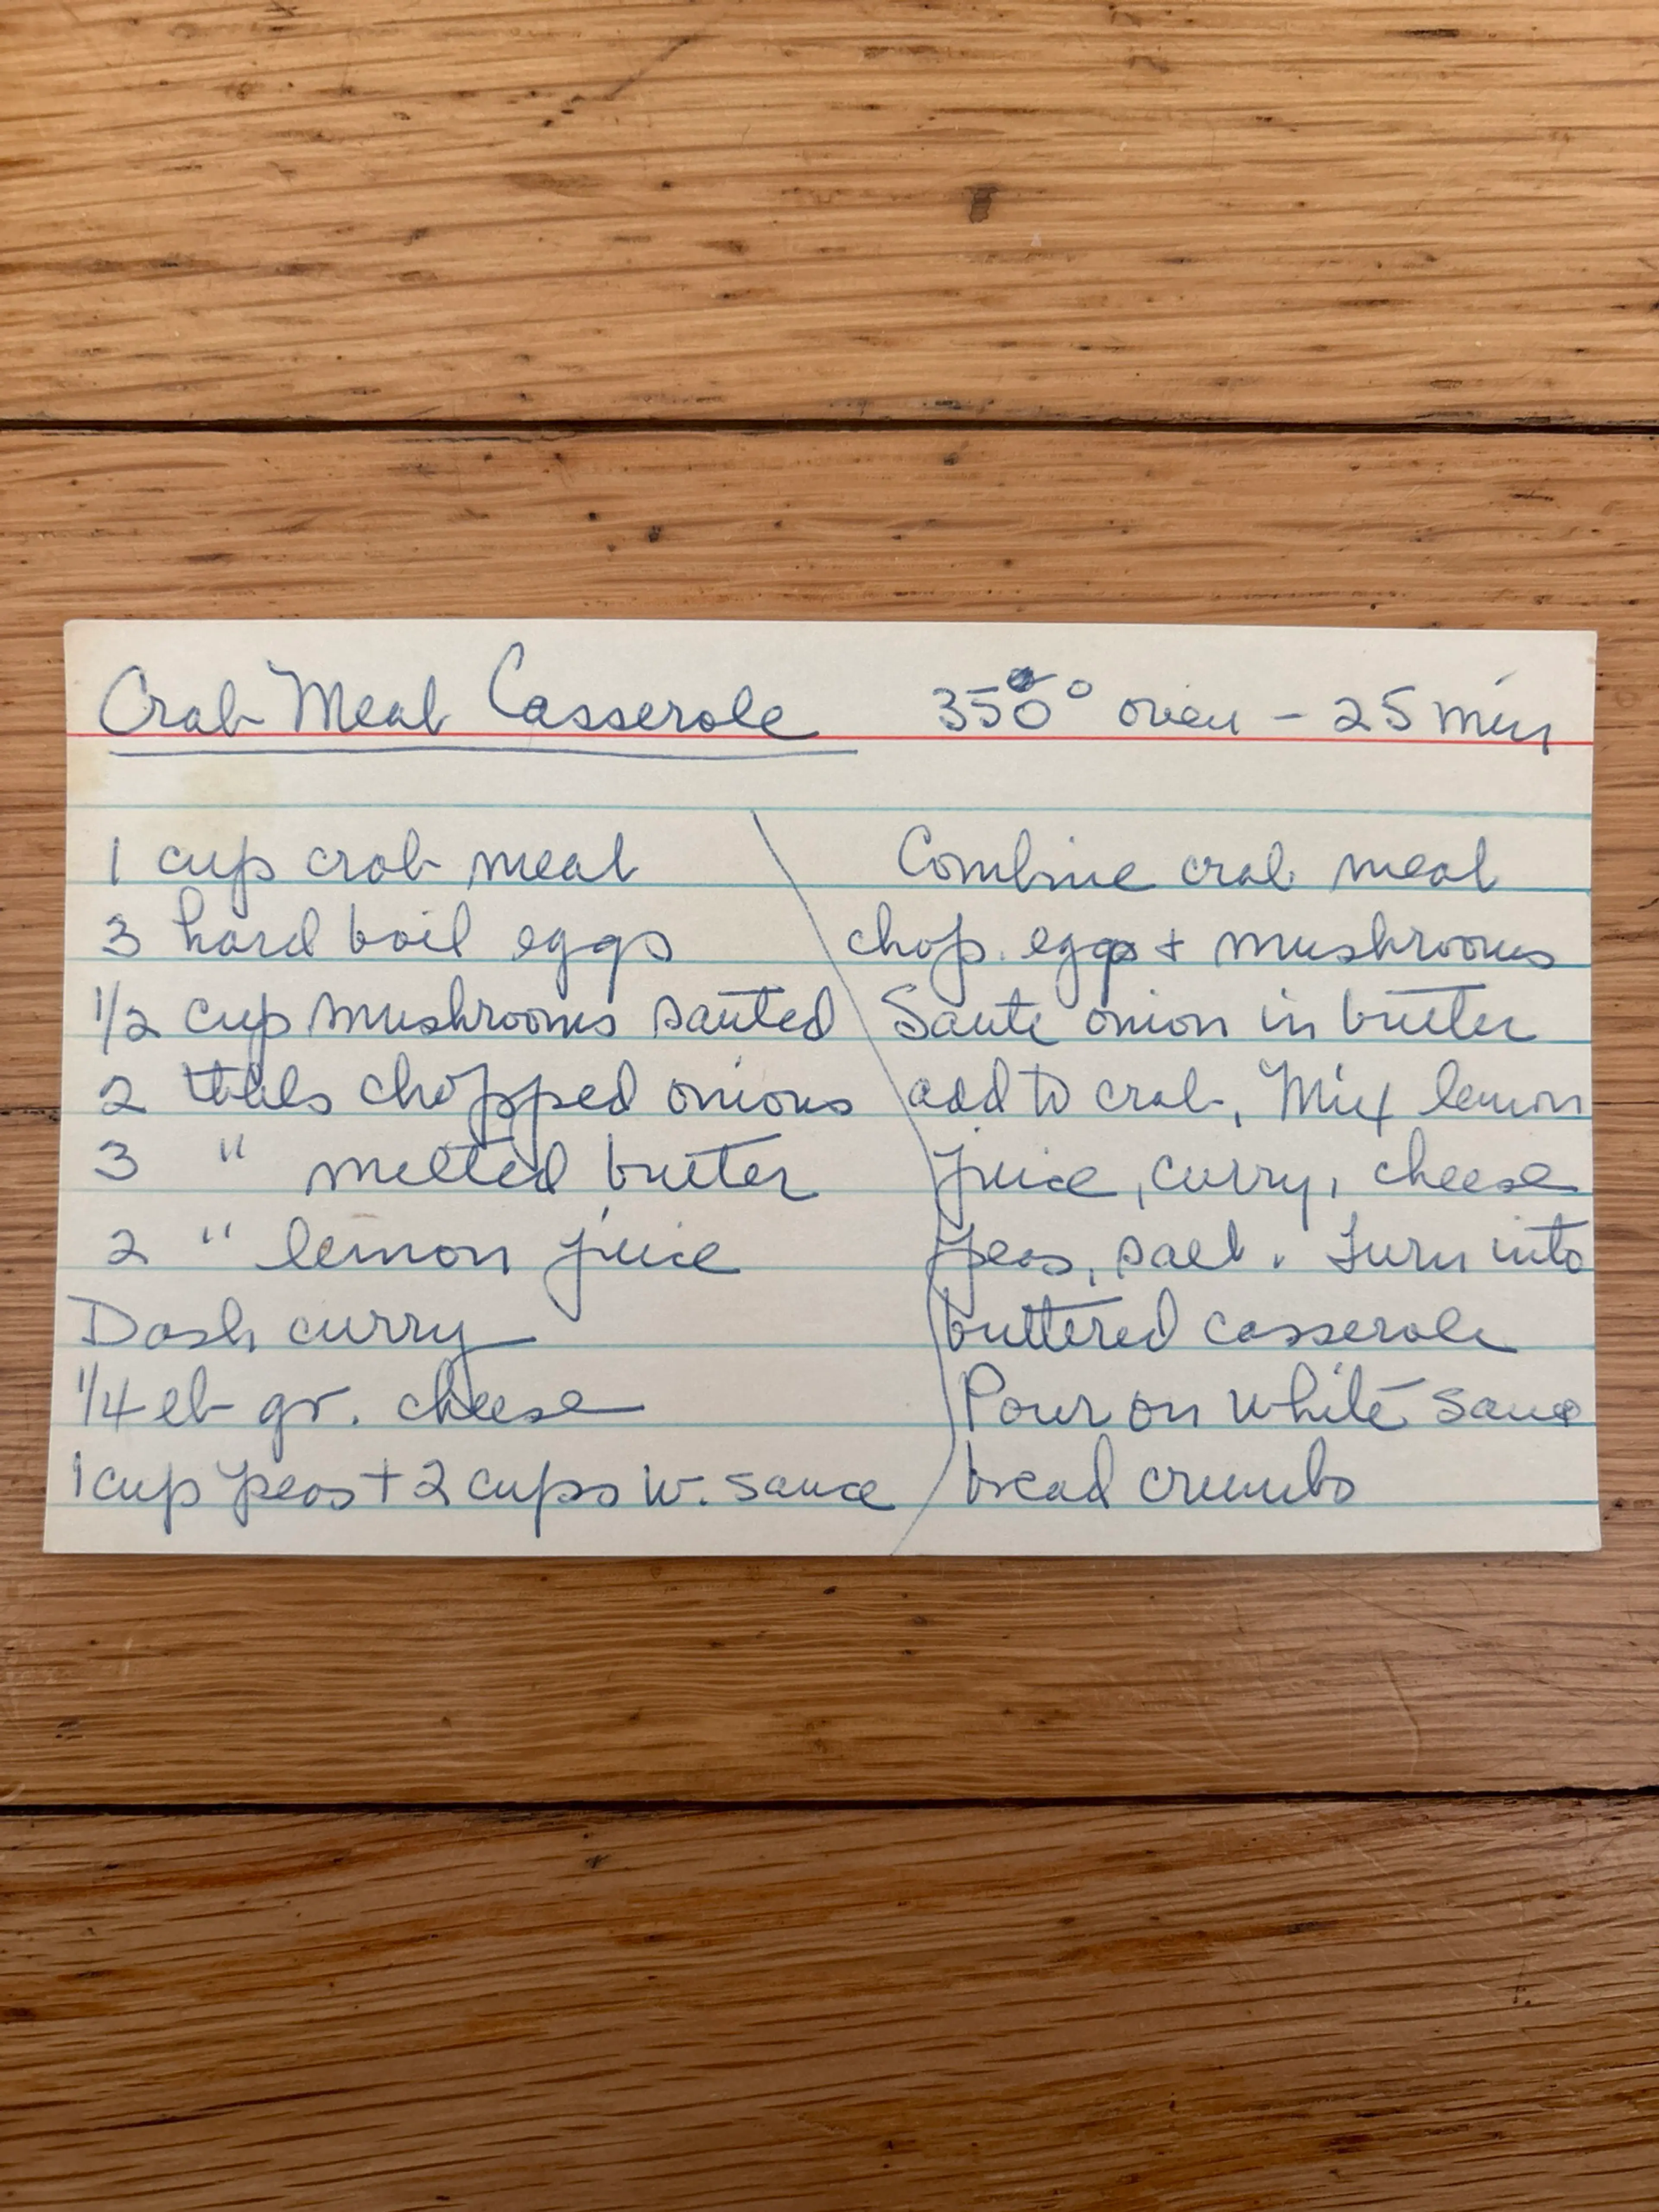 Crab Meat Casserole 350° oven - 25 min
1 cup crab meat
3 hard boil eggs
1/2 cup mushrooms sauted
2 tbls chopped onions
3 " melted butter
2 " lemon juice
Dash curry
1/4 lb gr. cheese
1 cup peas + 2 cups w. sauce
Combine crab meat
chop. eggs + mushrooms
Saute onion in butter
add to crab, Mix lemon
juice, curry, cheese
peas, salt. Turn into
buttered casserole
Pour on white sauce
bread crumbs